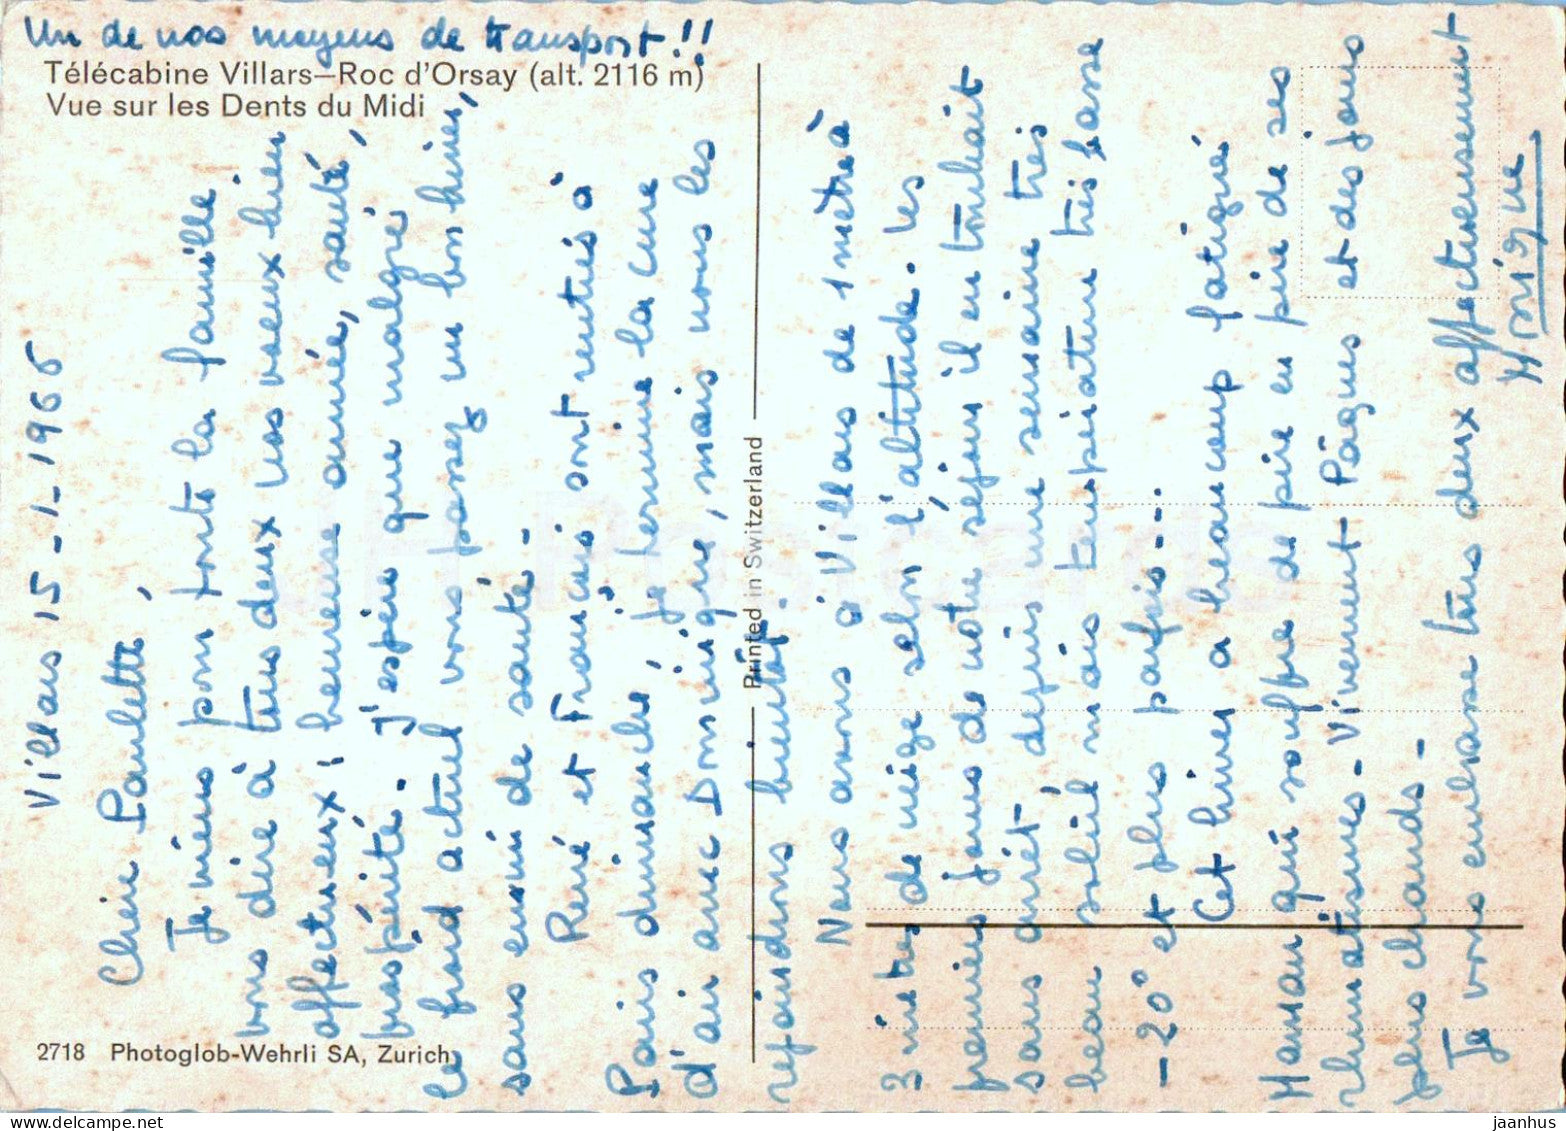 Un de nos moyens de transport!!
Télécabine Villars–Roc d'Orsay (alt. 2116 m)
Vue sur les Dents du Midi
Villars 15-1-1965
Chère Paulette,
Je viens pour toute la famille
vous dire à tous deux nos voeux bien
affectueux; heureuse année, santé,
prospérité. J'espère que malgré
le froid actuel vous passez un bon hiver,
sans ennui de santé-
René et Francis sont rentrés à
Paris dimanche, je termine la cure
d'air avec Dominique, mais nous les
rejoindrons bientôt.
Nous avons à Villars de 1 mètre à
3 mètres de neige selon l'altitude. les
premiers jours de notre séjour il en tombait
sans arrêt, depuis une semaine très
beau soleil mais température très basse
-20° et plus parfois---
Cet hiver a beaucoup fatigué
Maman qui souffre de pire en pire de ses
rhumatismes- Vivement Pâques et des jours
plus chauds-
Je vous embrasse tous deux affectueusement
Printed in Switzerland
2718 Photoglob-Wehrli SA, Zurich
JH Postcards
jaanhus @ delcampe.net